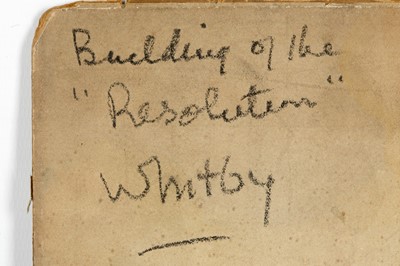 Building of the
"Resolution"
Whitby